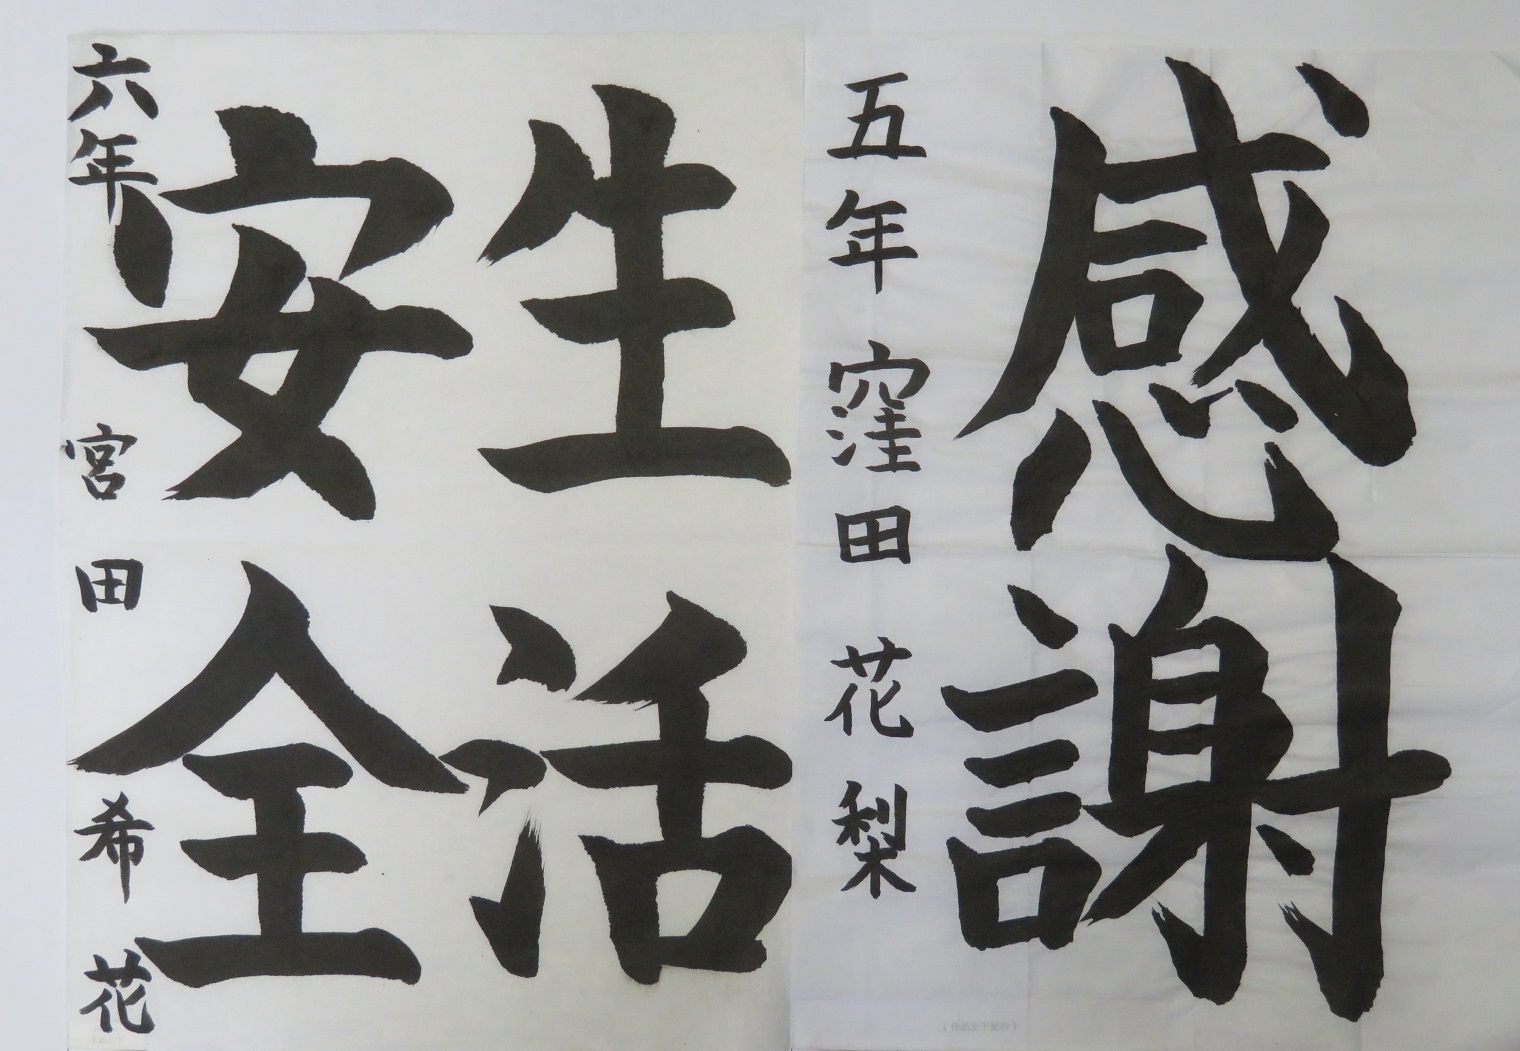 感謝
五年 窪田 花梨
生活
安全
六年 宮田 希花